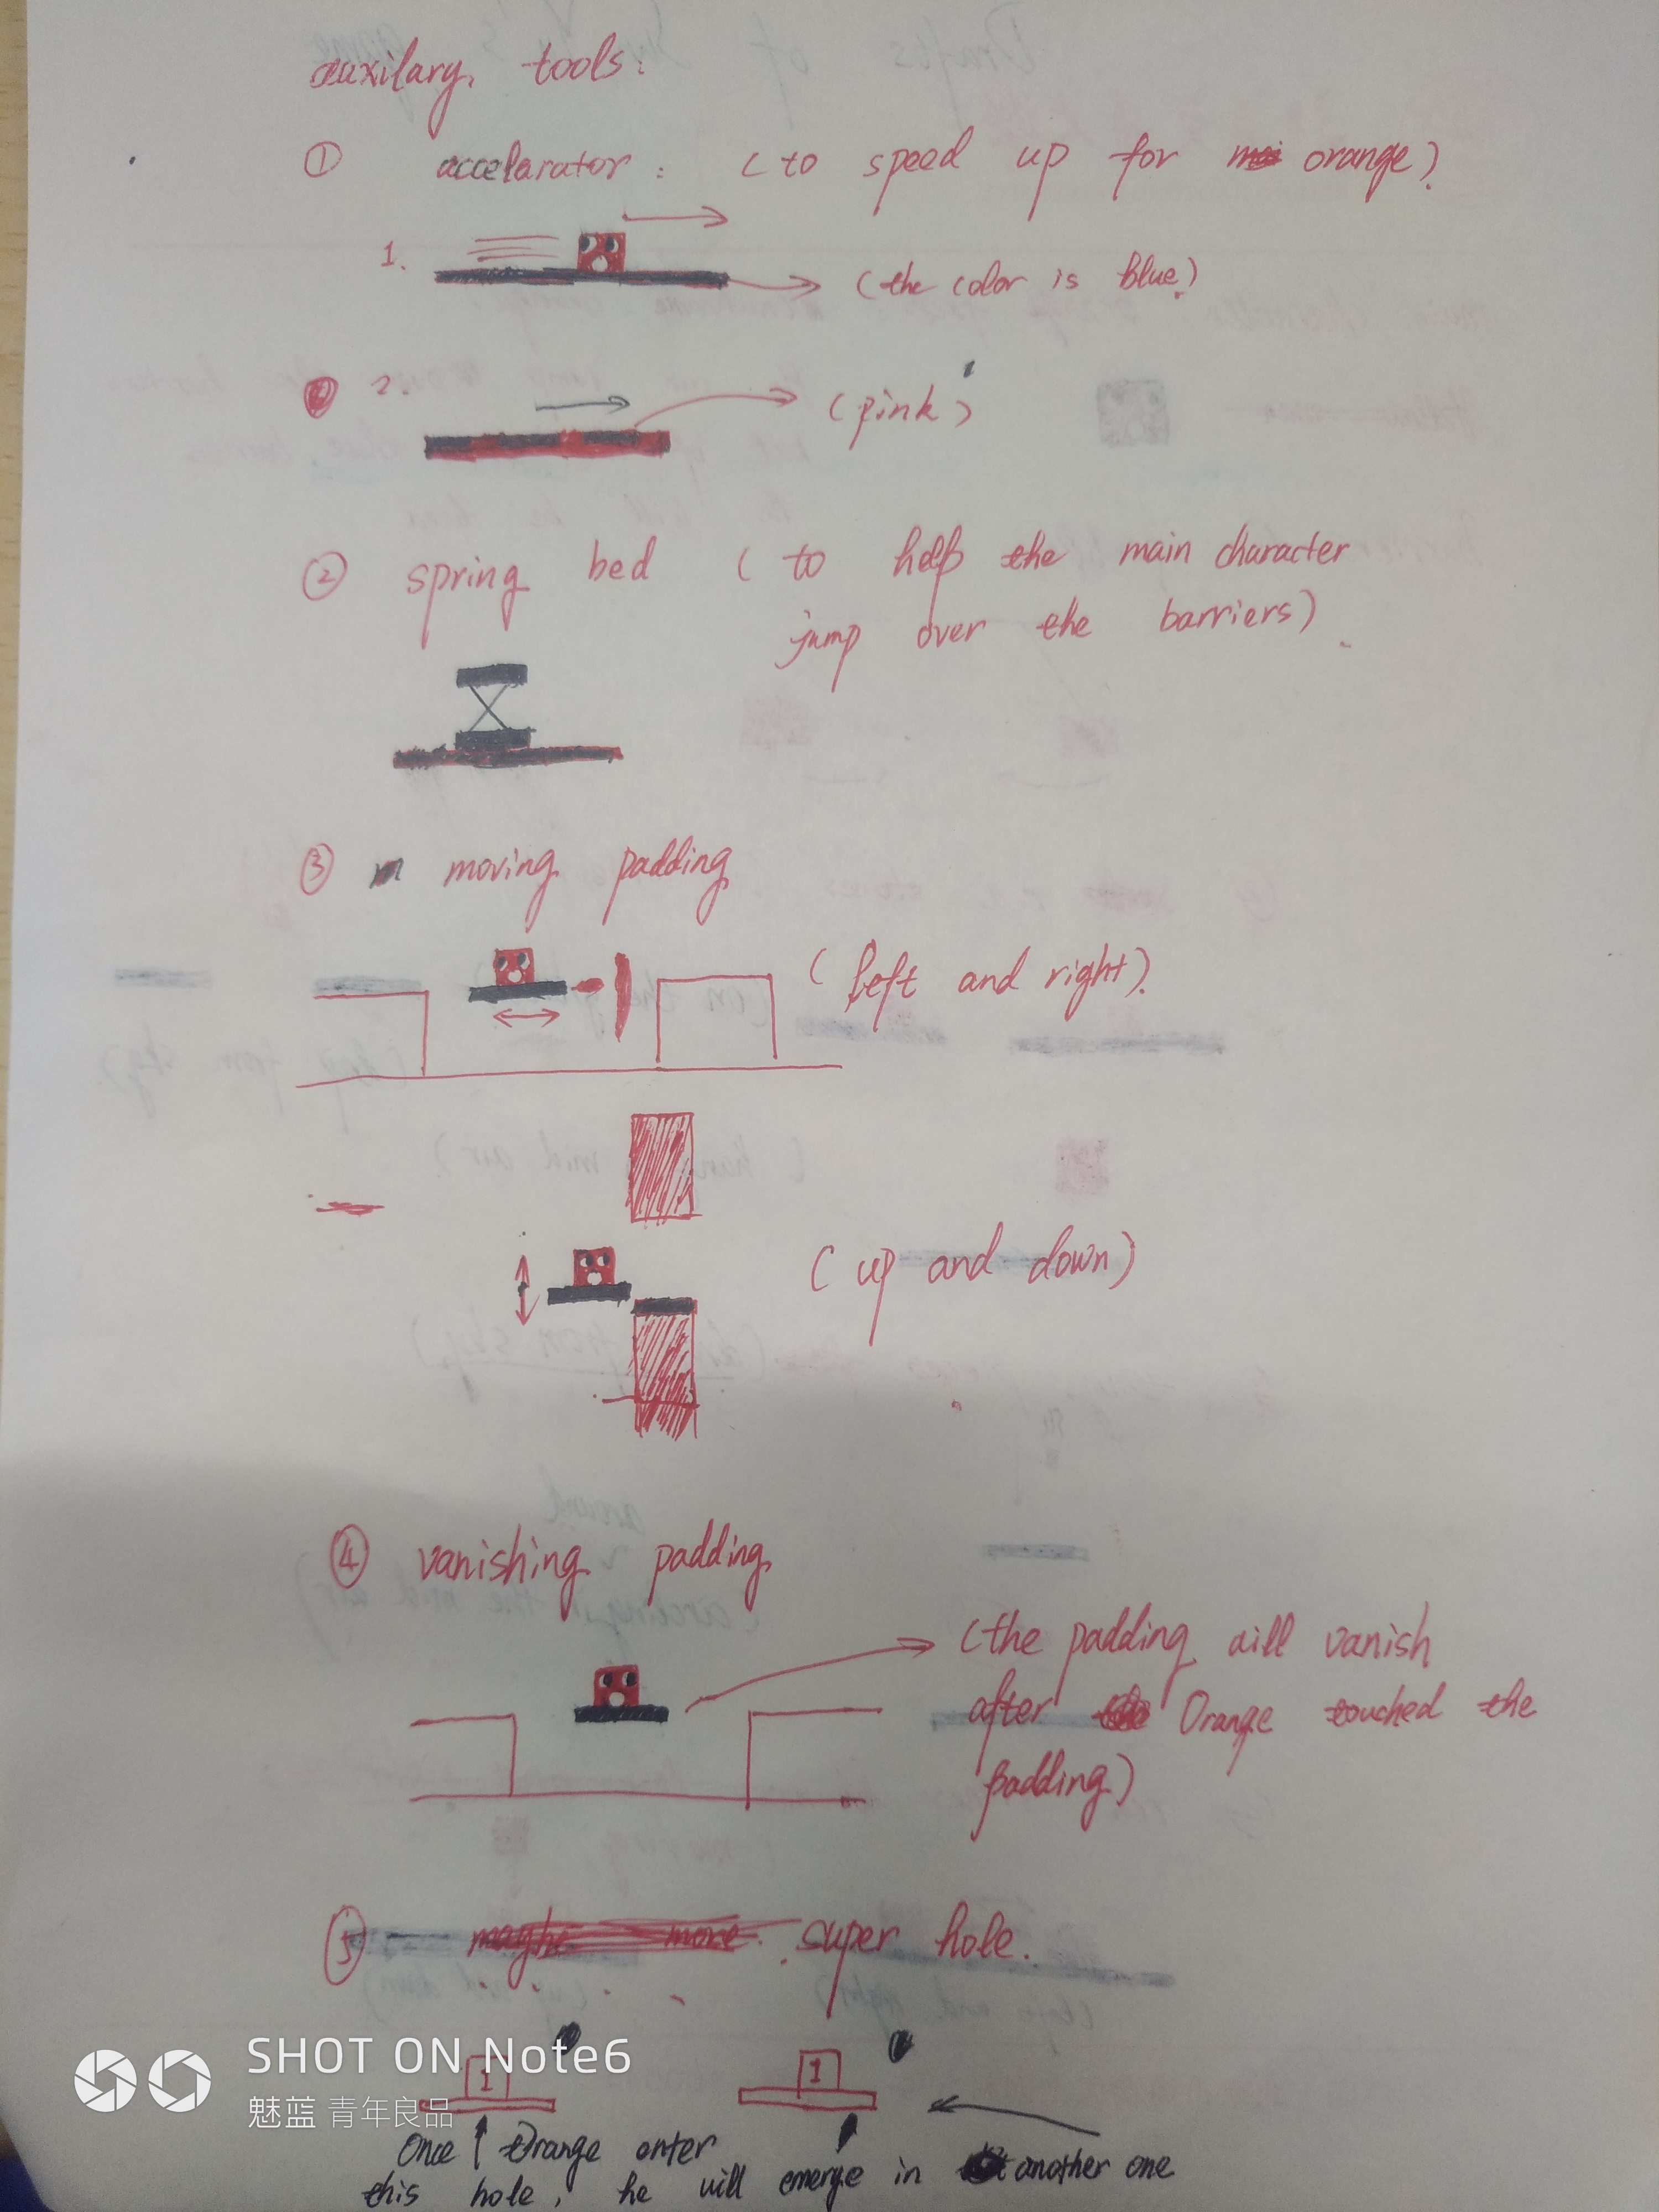 auxilary tools:
① accelarator: (to speed up for orange).
1.
(the color is blue.)
2.
(pink)
② spring bed ( to help the main character
jump over the barriers).
③ moving padding
(left and right).
(up and down)
④ vanishing padding
(the padding will vanish
after Orange touched the
padding)
⑤ maybe more super hole.
1 1
Once Orange enter
this hole, he will emerge in another one
SHOT ON Note6
魅蓝 青年良品